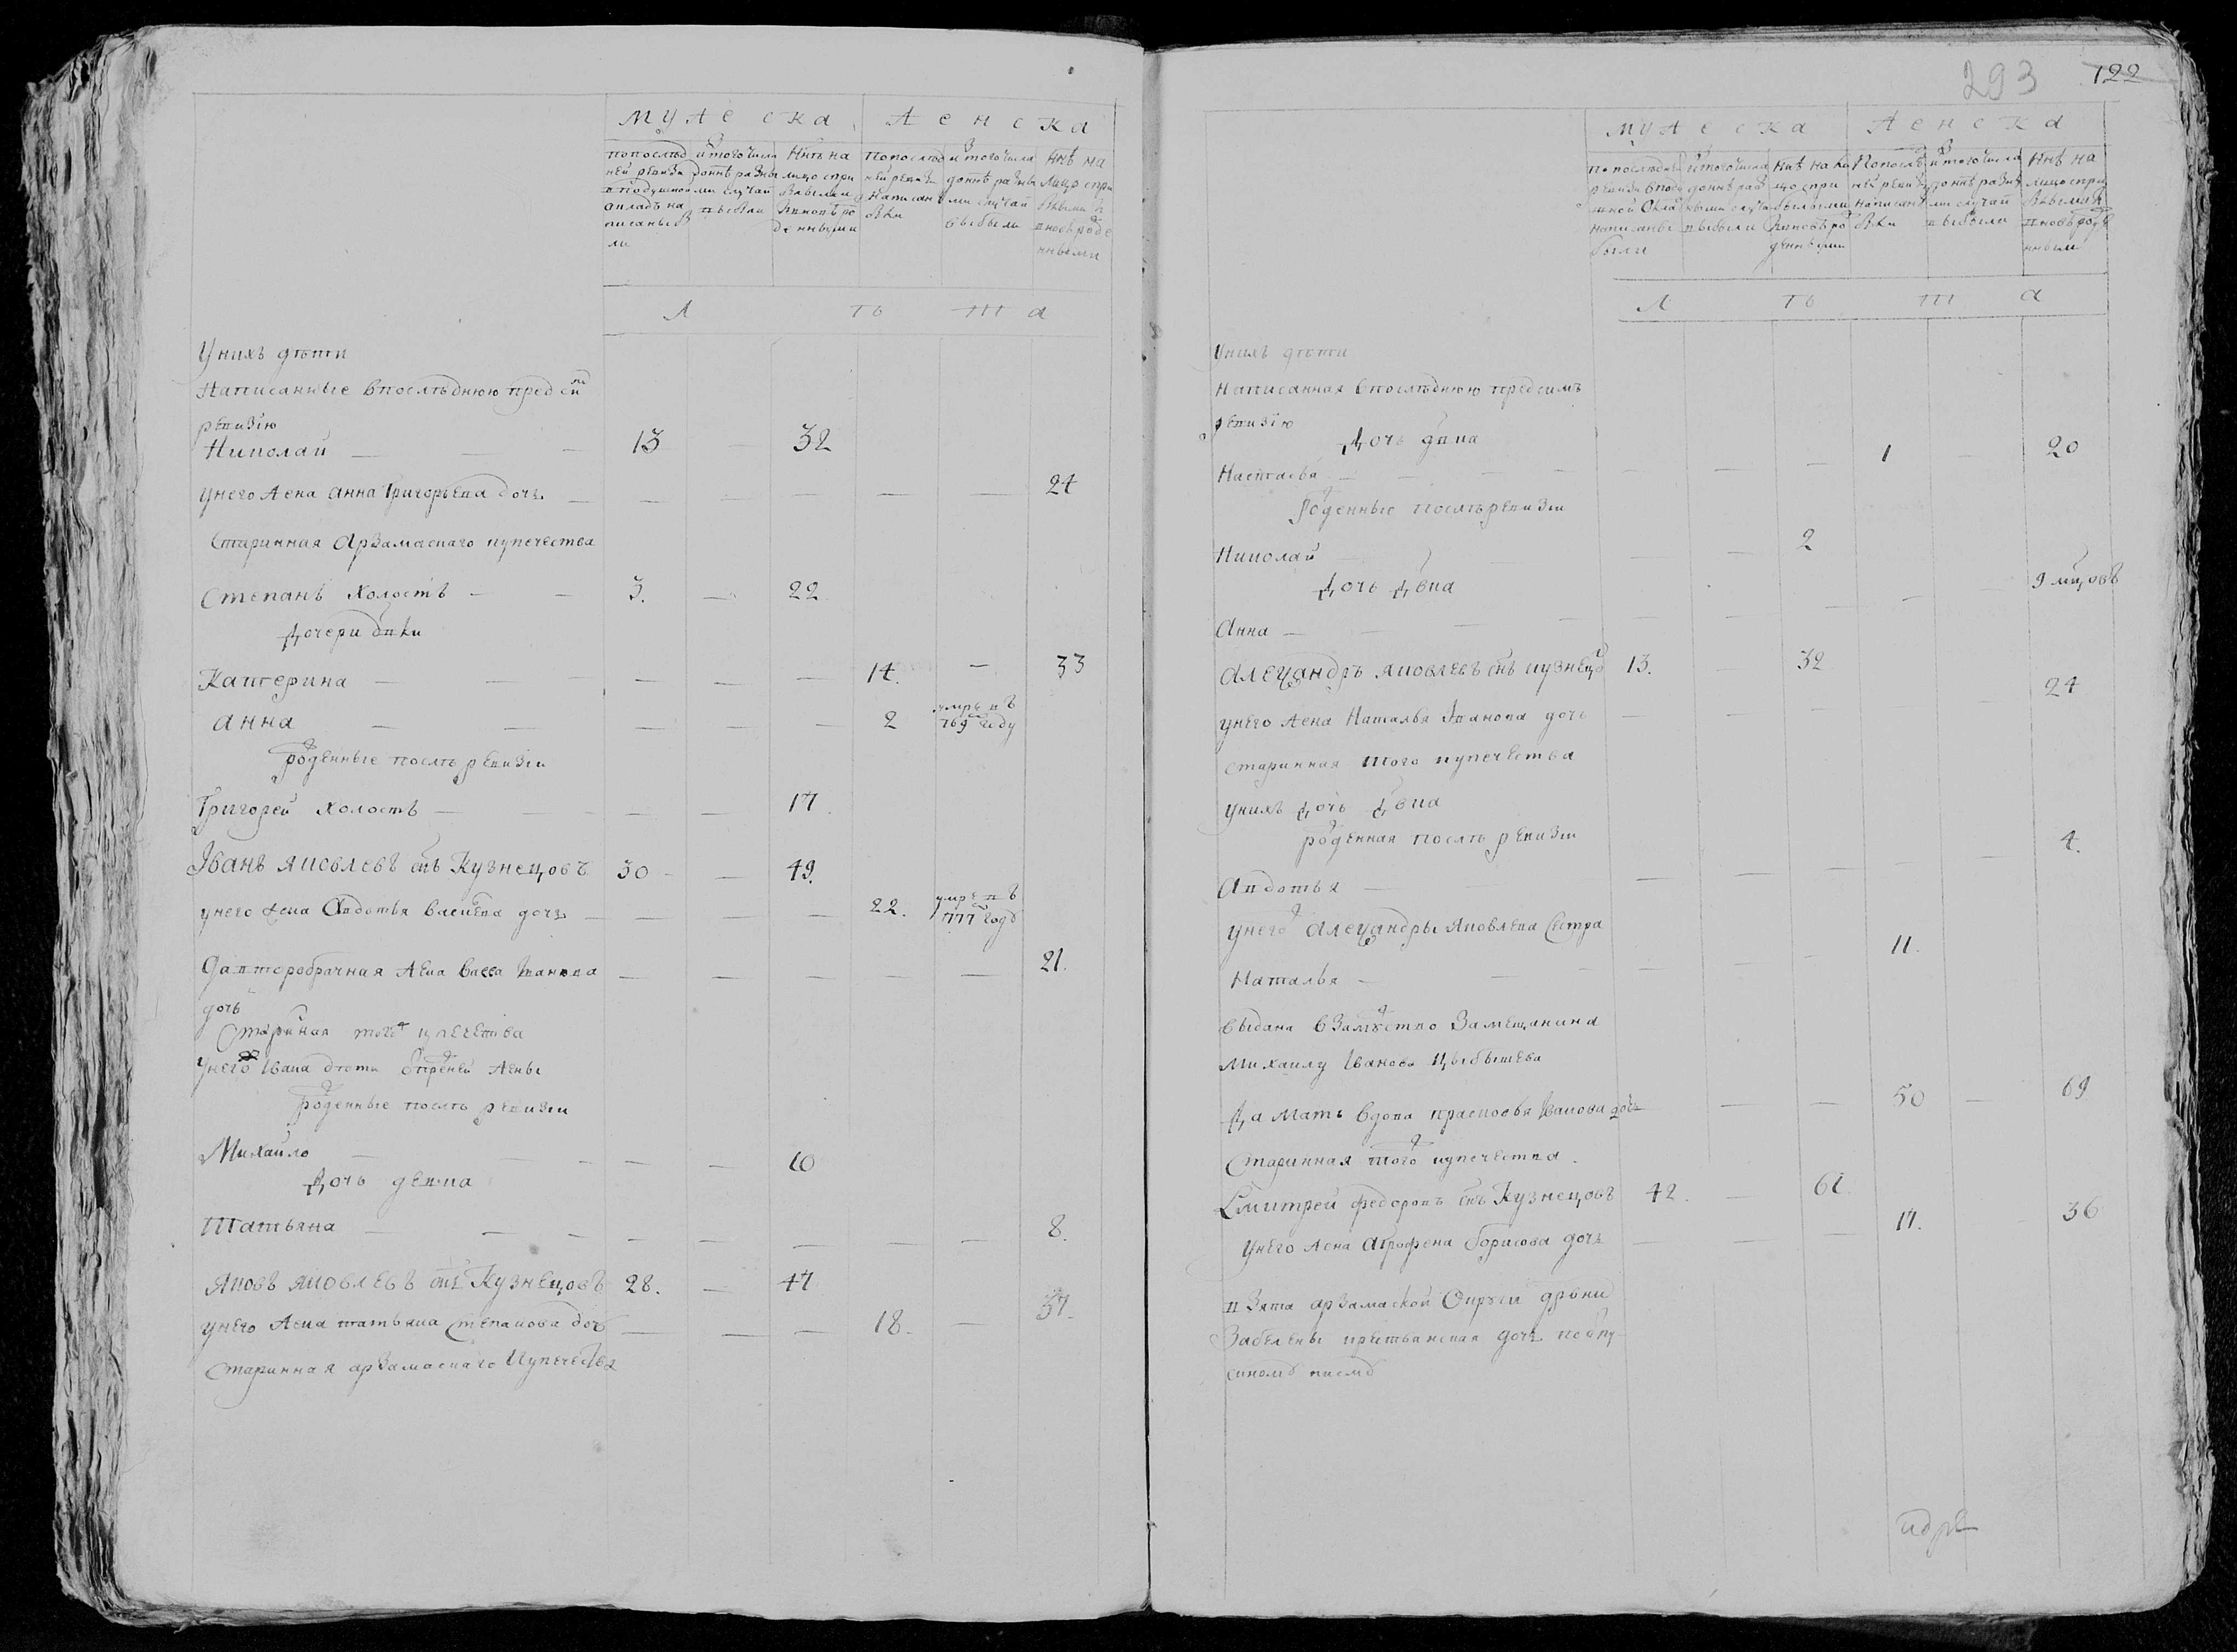 муже ска женска
попослѣд ней ревизи вподушной окладъ на писаны бы ли
изтого числа донне разны ми случаи выбыли
Ннѣ на лицо спри былыми ивновь ро жденными
попослѣд ней ревизи написан ѣ были
изтого числа донне разны ми случаи выбыли
ннѣ на лицо спри былыми и вновь рожде нными
Л ѣ т а
Унихъ дѣти
Написанные впослѣднюю пред сим
ревизiю
Николай — 13 — 32
унего жена анна Григорьева дочь — 24
Старинная арзамаскаго купечества
Степанъ холостъ — 3. — 22
Дочери двки
Катерина — 14. — 33
анна — 2 умре въ 769 году
рожденные послѣ ревизiи
Григорей холостъ — 17.
Iванъ яковлевъ снъ Кузнецовъ 30 — 49.
унего жена Авдотья васильева дочь — 22. умре въ 777 году
Давторобрачная жена васса Iванова — 21.
дочь
Старинная того купечества
Унего Iвана дѣти отпрежней жены
рожденные послѣ ревизiи
Михайло — 10
Дочь девка
Татьяна — 8.
Яковъ яковлевъ снъ Кузнецовъ 28. — 47
унего жена татьяна Степанова дочь — 18. — 37.
Старинная арзамаскаго Купечества
293 122
муже ска женска
попоследней ревизи вподушной окла написаны были
изтого числа донне раз ными случаи выбыли
Ннѣ на ли цо спри былыми ивновь ро жденными
Попослѣд ней ревизи написан были
изтого числа донне разны ми случаи выбыли
Ннѣ на лицо спри былыми и вновь рожде нными
Л ѣ т а
унихъ дѣти
написанная впослѣднюю предсимъ
ревизiю
Дочь двка
Настасья — 1 — 20
Рожденные послѣ ревизiи
Николай — 2
Дочь Двка
Анна — 9 мцовъ
Александръ яковлевъ снъ кузнецо 13. — 32
унего жена Наталья Iванова дочь — 24
старинная того купечества
унихъ дочь двка
рожденная послѣ ревизiи
Авдотья — 4.
унего Александры Яковлева Сестра
Наталья — 11.
выдана взамужство замещанина
Михаилу Iванова Цыбышева
Да мать вдова прасковья Iванова дочь — 50 — 69
Старинная того купечества
Дмитрей федоровъ снъ Кузнецовъ 42. — 61.
унего жена Агрофена борисова дочь — 17. — 36
взята арзамаской Округи држни
Забелены кретьянская дочь поотпу
скному писму